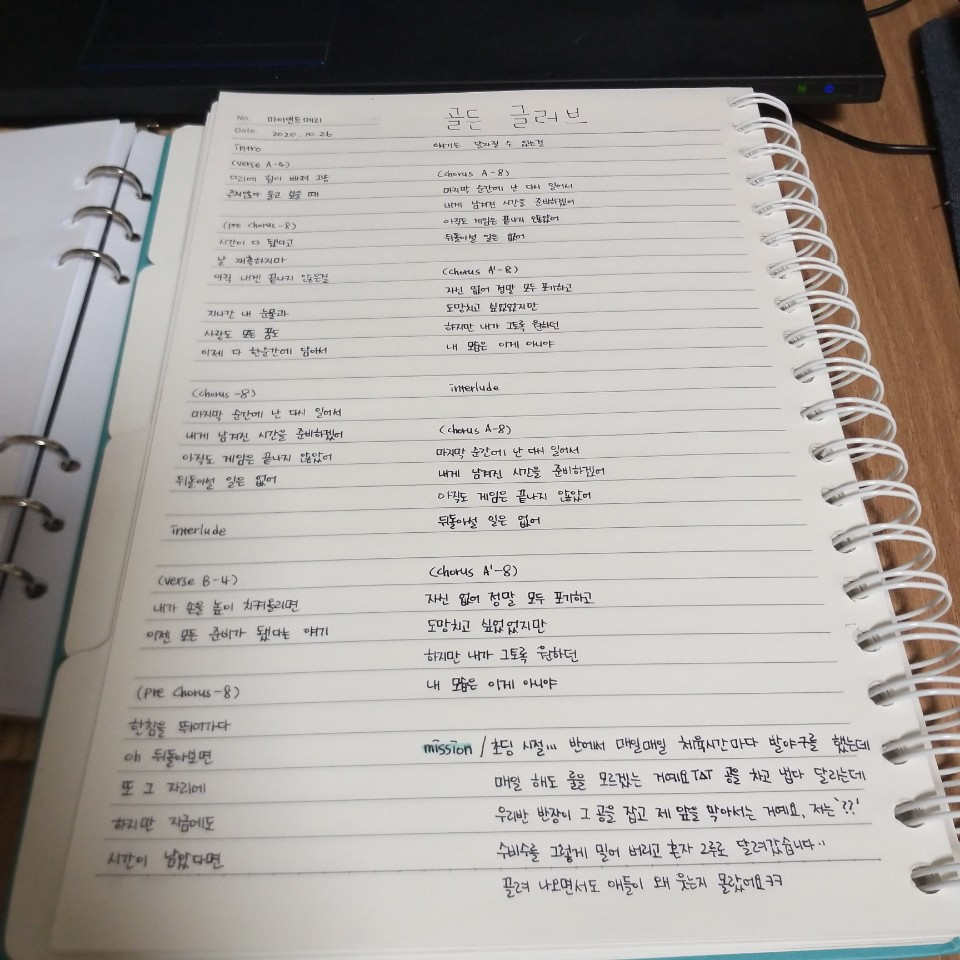 골든 글러브
No. 마이앤트메리
Date. 2020. 10. 26
intro
(verse A-8)
다리에 힘이 빠져 그냥
주저앉아 울고 싶을 때
(pre chorus-8)
시간이 다 됐다고
날 재촉하지마
아직 내겐 끝나지 않은걸
지나간 내 눈물과
사랑도 모든 꿈도
이제 다 한순간에 담아서
(chorus -8)
마지막 순간에 난 다시 일어서
내게 남겨진 시간을 준비하겠어
아직도 게임은 끝나지 않았어
뒤돌아설 일은 없어
interlude
(verse B-4)
내가 손을 높이 치켜올리면
이젠 모든 준비가 됐다는 얘기
(pre chorus-8)
한참을 뛰어가다
아 뒤돌아보면
또 그 자리에
하지만 지금에도
시간이 남았다면
얘기는 달라질 수 있는걸
(chorus A-8)
마지막 순간에 난 다시 일어서
내게 남겨진 시간을 준비하겠어
아직도 게임은 끝나지 않았어
뒤돌아설 일은 없어
(chorus A'-8)
자신 없어 정말 모두 포기하고
도망치고 싶었었지만
하지만 내가 그토록 원하던
내 모습은 이게 아니야
interlude
(chorus A-8)
마지막 순간에 난 다시 일어서
내게 남겨진 시간을 준비하겠어
아직도 게임은 끝나지 않았어
뒤돌아설 일은 없어
(chorus A'-8)
자신 없어 정말 모두 포기하고
도망치고 싶었었지만
하지만 내가 그토록 원하던
내 모습은 이게 아니야
mission / 초딩 시절... 반에서 매일매일 체육시간마다 발야구를 했는데
매일 해도 룰을 모르겠는 거예요TAT 공을 차고 냅다 달리는데
우리반 반장이 그 공을 잡고 제 앞을 막아서는 거예요. 저는 '??'
수비수를 그렇게 밀어 버리고 혼자 2루로 달려갔습니다..
끌려 나오면서도 애들이 왜 웃는지 몰랐어요ㅋㅋ